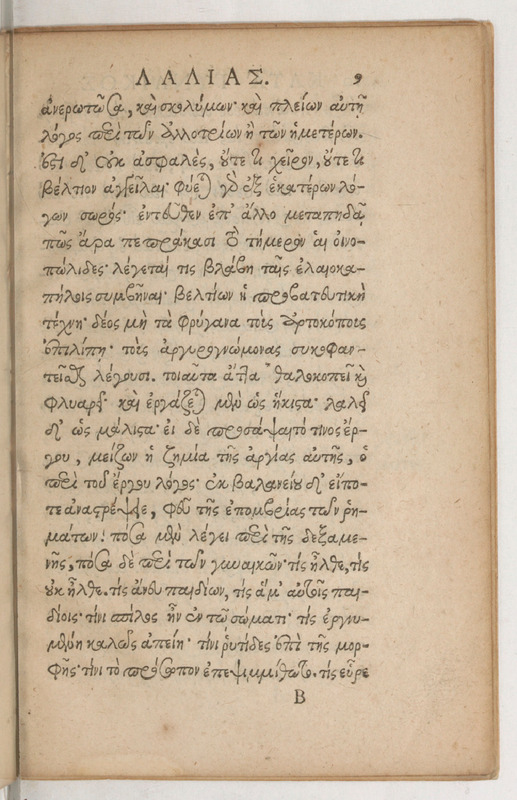 ΛΑΛΙΑΣ. 9
ἀνερωτῶσα, καὶ σκολύμων· καὶ πλείων αὐτῇ
λόγος περὶ τῶν ἀλλοτρίων ἢ τῶν ἡμετέρων.
ἔστι δ' οὐκ ἀσφαλὲς, οὔτε τι χεῖρον, οὔτε τι
βέλτιον ἀγγεῖλαι· φύεται γὸ ἐξ ἑκατέρων λό-
γων σωρός· ἐντεῦθεν ἐπ' ἄλλο μεταπηδᾷ,
πῶς ἄρα πεπράκασι τὸ τήμερον αἱ οἰνο-
πώλιδες· λέγεταί τις βλάβη ταῖς ἐλαιοκα-
πήλοις συμβῆναι· βελτίων ἡ προβατευτικὴ
τέχνη· δέος μὴ τὰ φρύγανα τοὺς ἀρτοκόπους
ἐπιλίπῃ· τοὺς ἀργυρογνώμονας συκοφαν-
τεῖσθαι λέγουσι. τοιαῦτα ἄττα θαλοκοπεῖ καὶ
φλυαρεῖ· καὶ ἐργάζεται μὲν ὡς ἥκιστα· λαλεῖ
δ' ὡς μάλιστα· εἰ δὲ προσάψαιτό τινος ἔρ-
γου, μείζων ἡ ζημία τῆς ἀργίας αὐτῆς, ὁ
περὶ τοῦ ἔργου λόγος· ἐκ βαλανείου δ' εἴπο-
τε ἀναστρέψειε, φεῦ τῆς ἐπομβρίας τῶν ῥη-
μάτων! πόσα μὲν λέγει περὶ τῆς δεξαμε-
νῆς, πόσα δὲ περὶ τῶν γυναικῶν· τίς ἦλθε, τίς
οὐκ ἦλθε. τίς ἄνευ παιδίων, τίς ἅμ' αὐτοῖς παι-
δίοις· τίνι σπίλος ἦν ἐν τῷ σώματι· τίς ἐργνυ-
μένη καλῶς ἀπείη· τίνι ῥυτίδες ἐπὶ τῆς μορ-
φῆς· τίνι τὸ πρόσωπον ἐπεψιμμίθωτο. τίς εὗρε
B